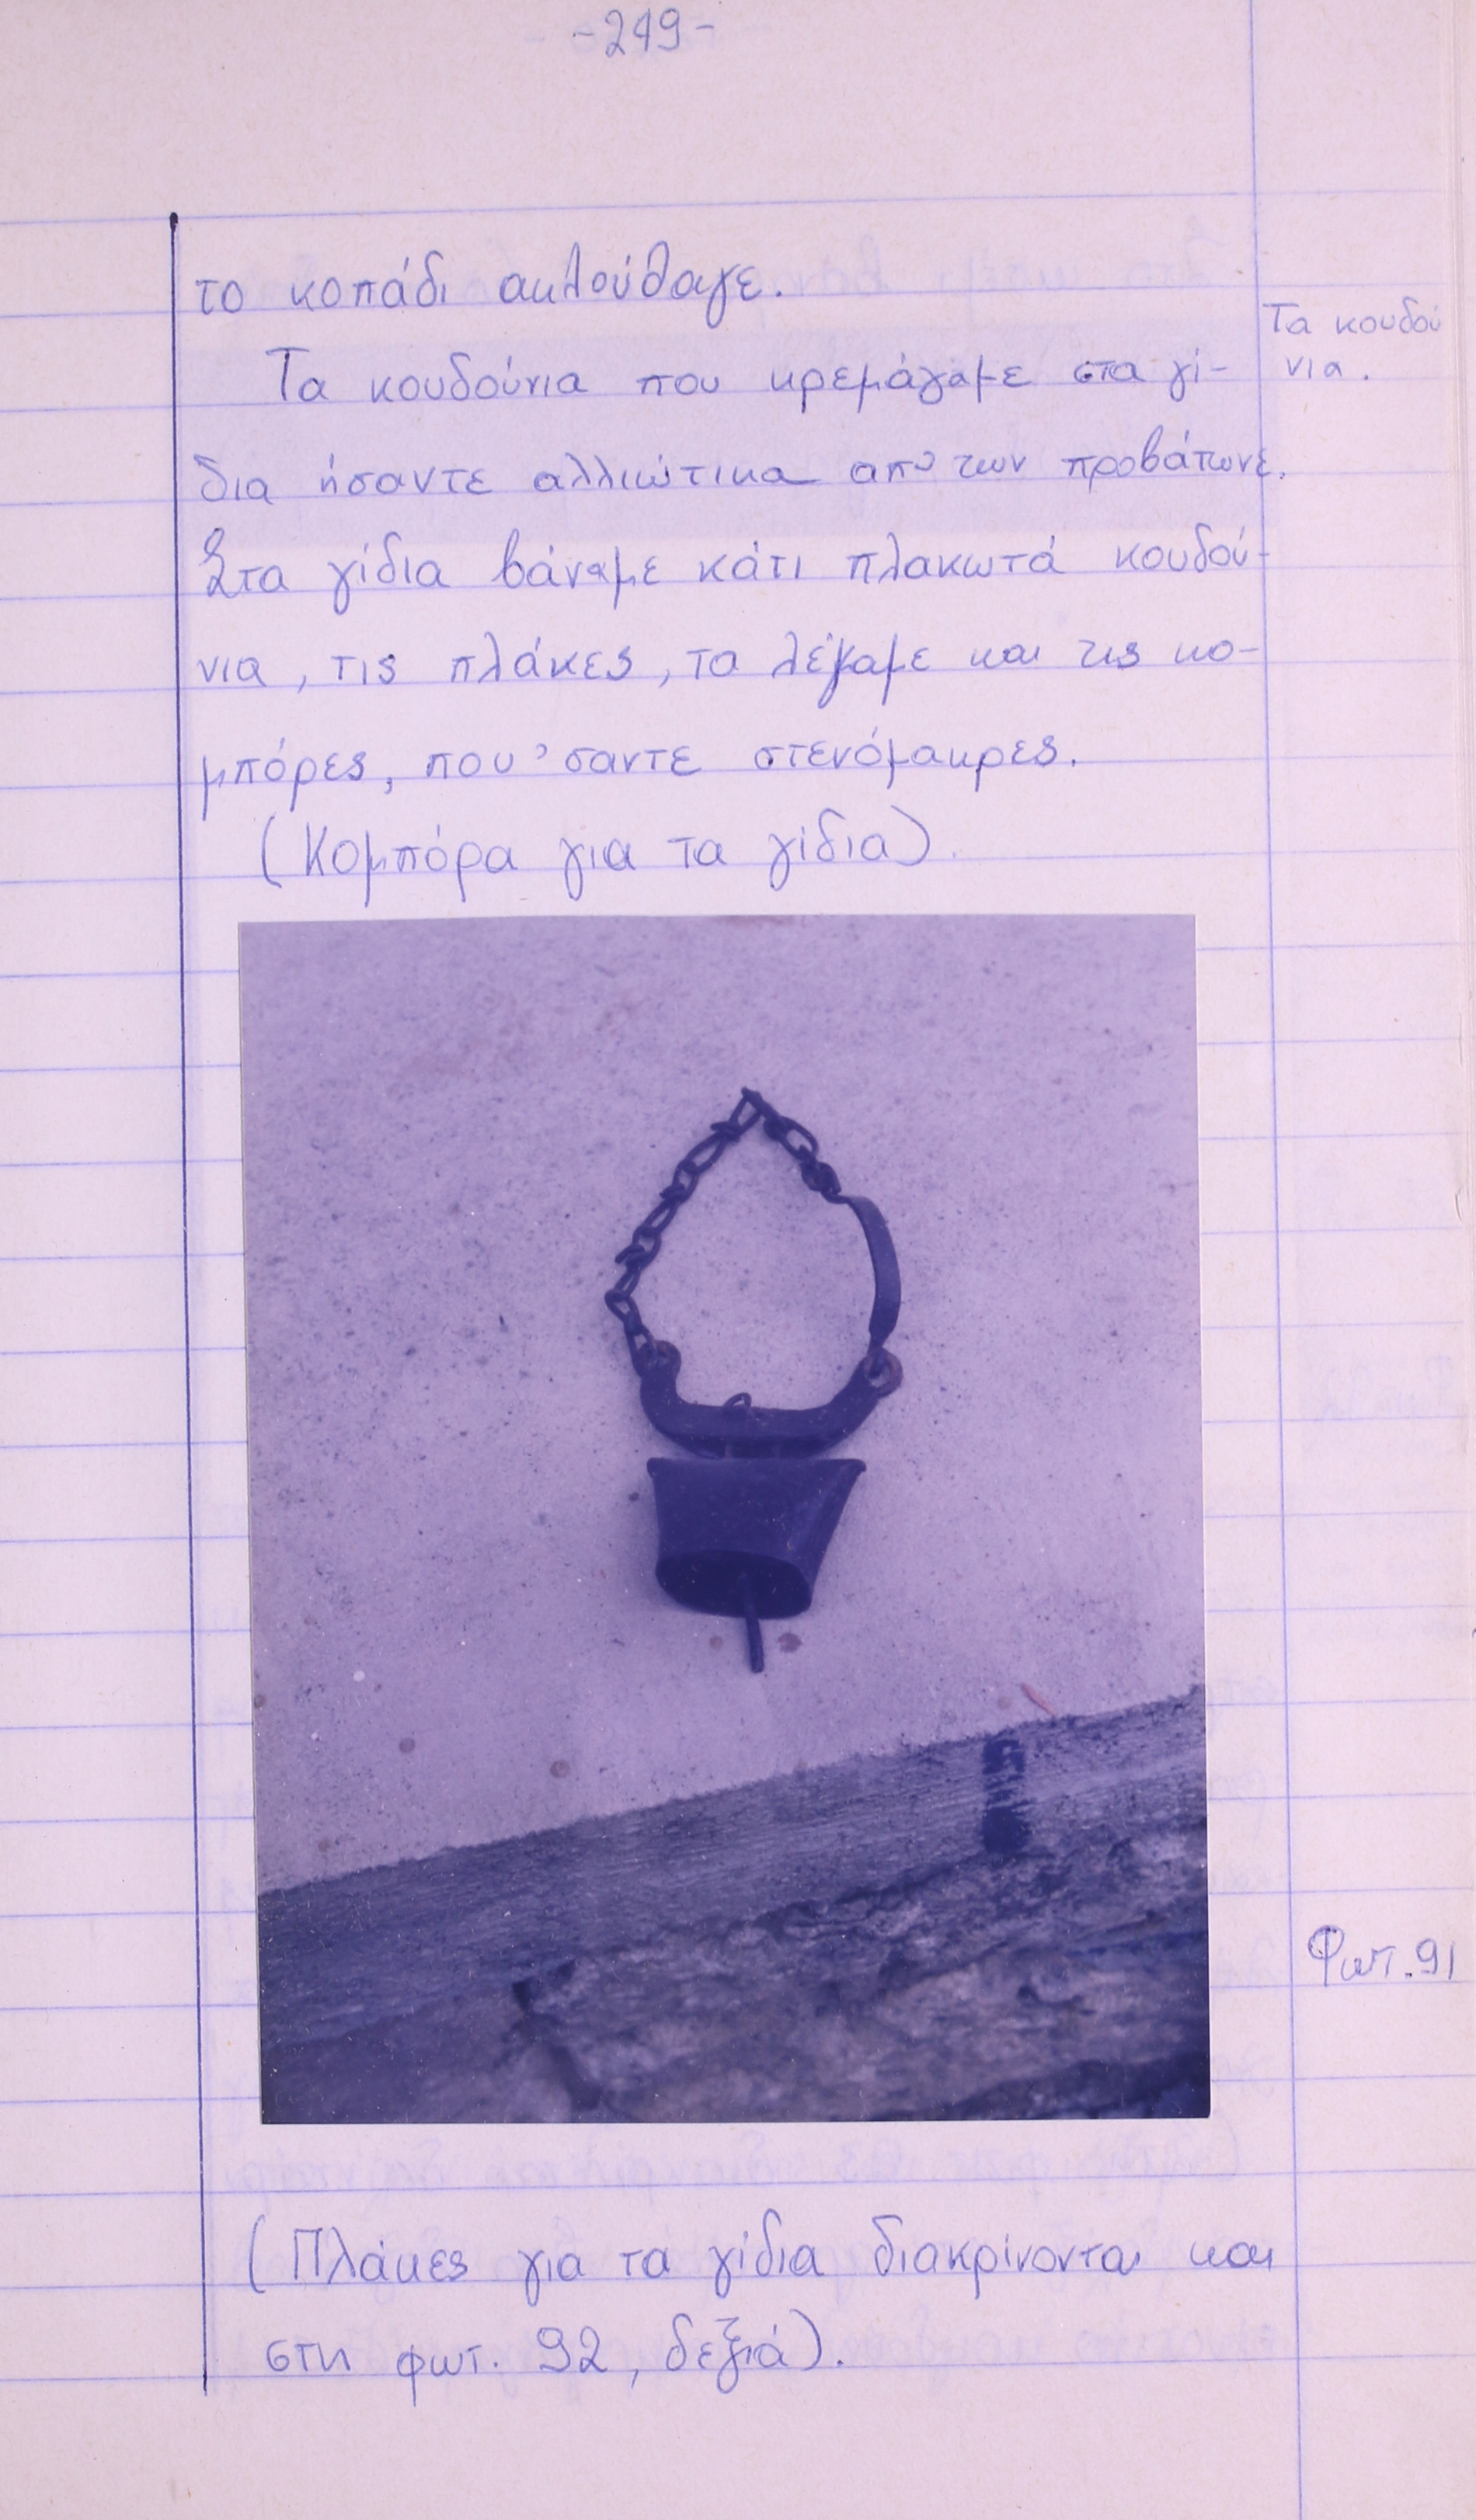 -249-
το κοπάδι ακλούθαγε.
Τα κουδούνια που κρεμάγαμε στα γί-
δια ήσαντε αλλιώτικα απ' των προβάτωνε.
Στα γίδια βάναμε κάτι πλακωτά κουδού-
νια, τις πλάκες, τα λέγαμε και τις κο-
μπόρες, που 'σαντε στενόμακρες.
(Κομπόρα για τα γίδια).
Τα κουδού
νια.
Φωτ. 91
(Πλάκες για τα γίδια διακρίνονται και
στη φωτ. 92, δεξιά).